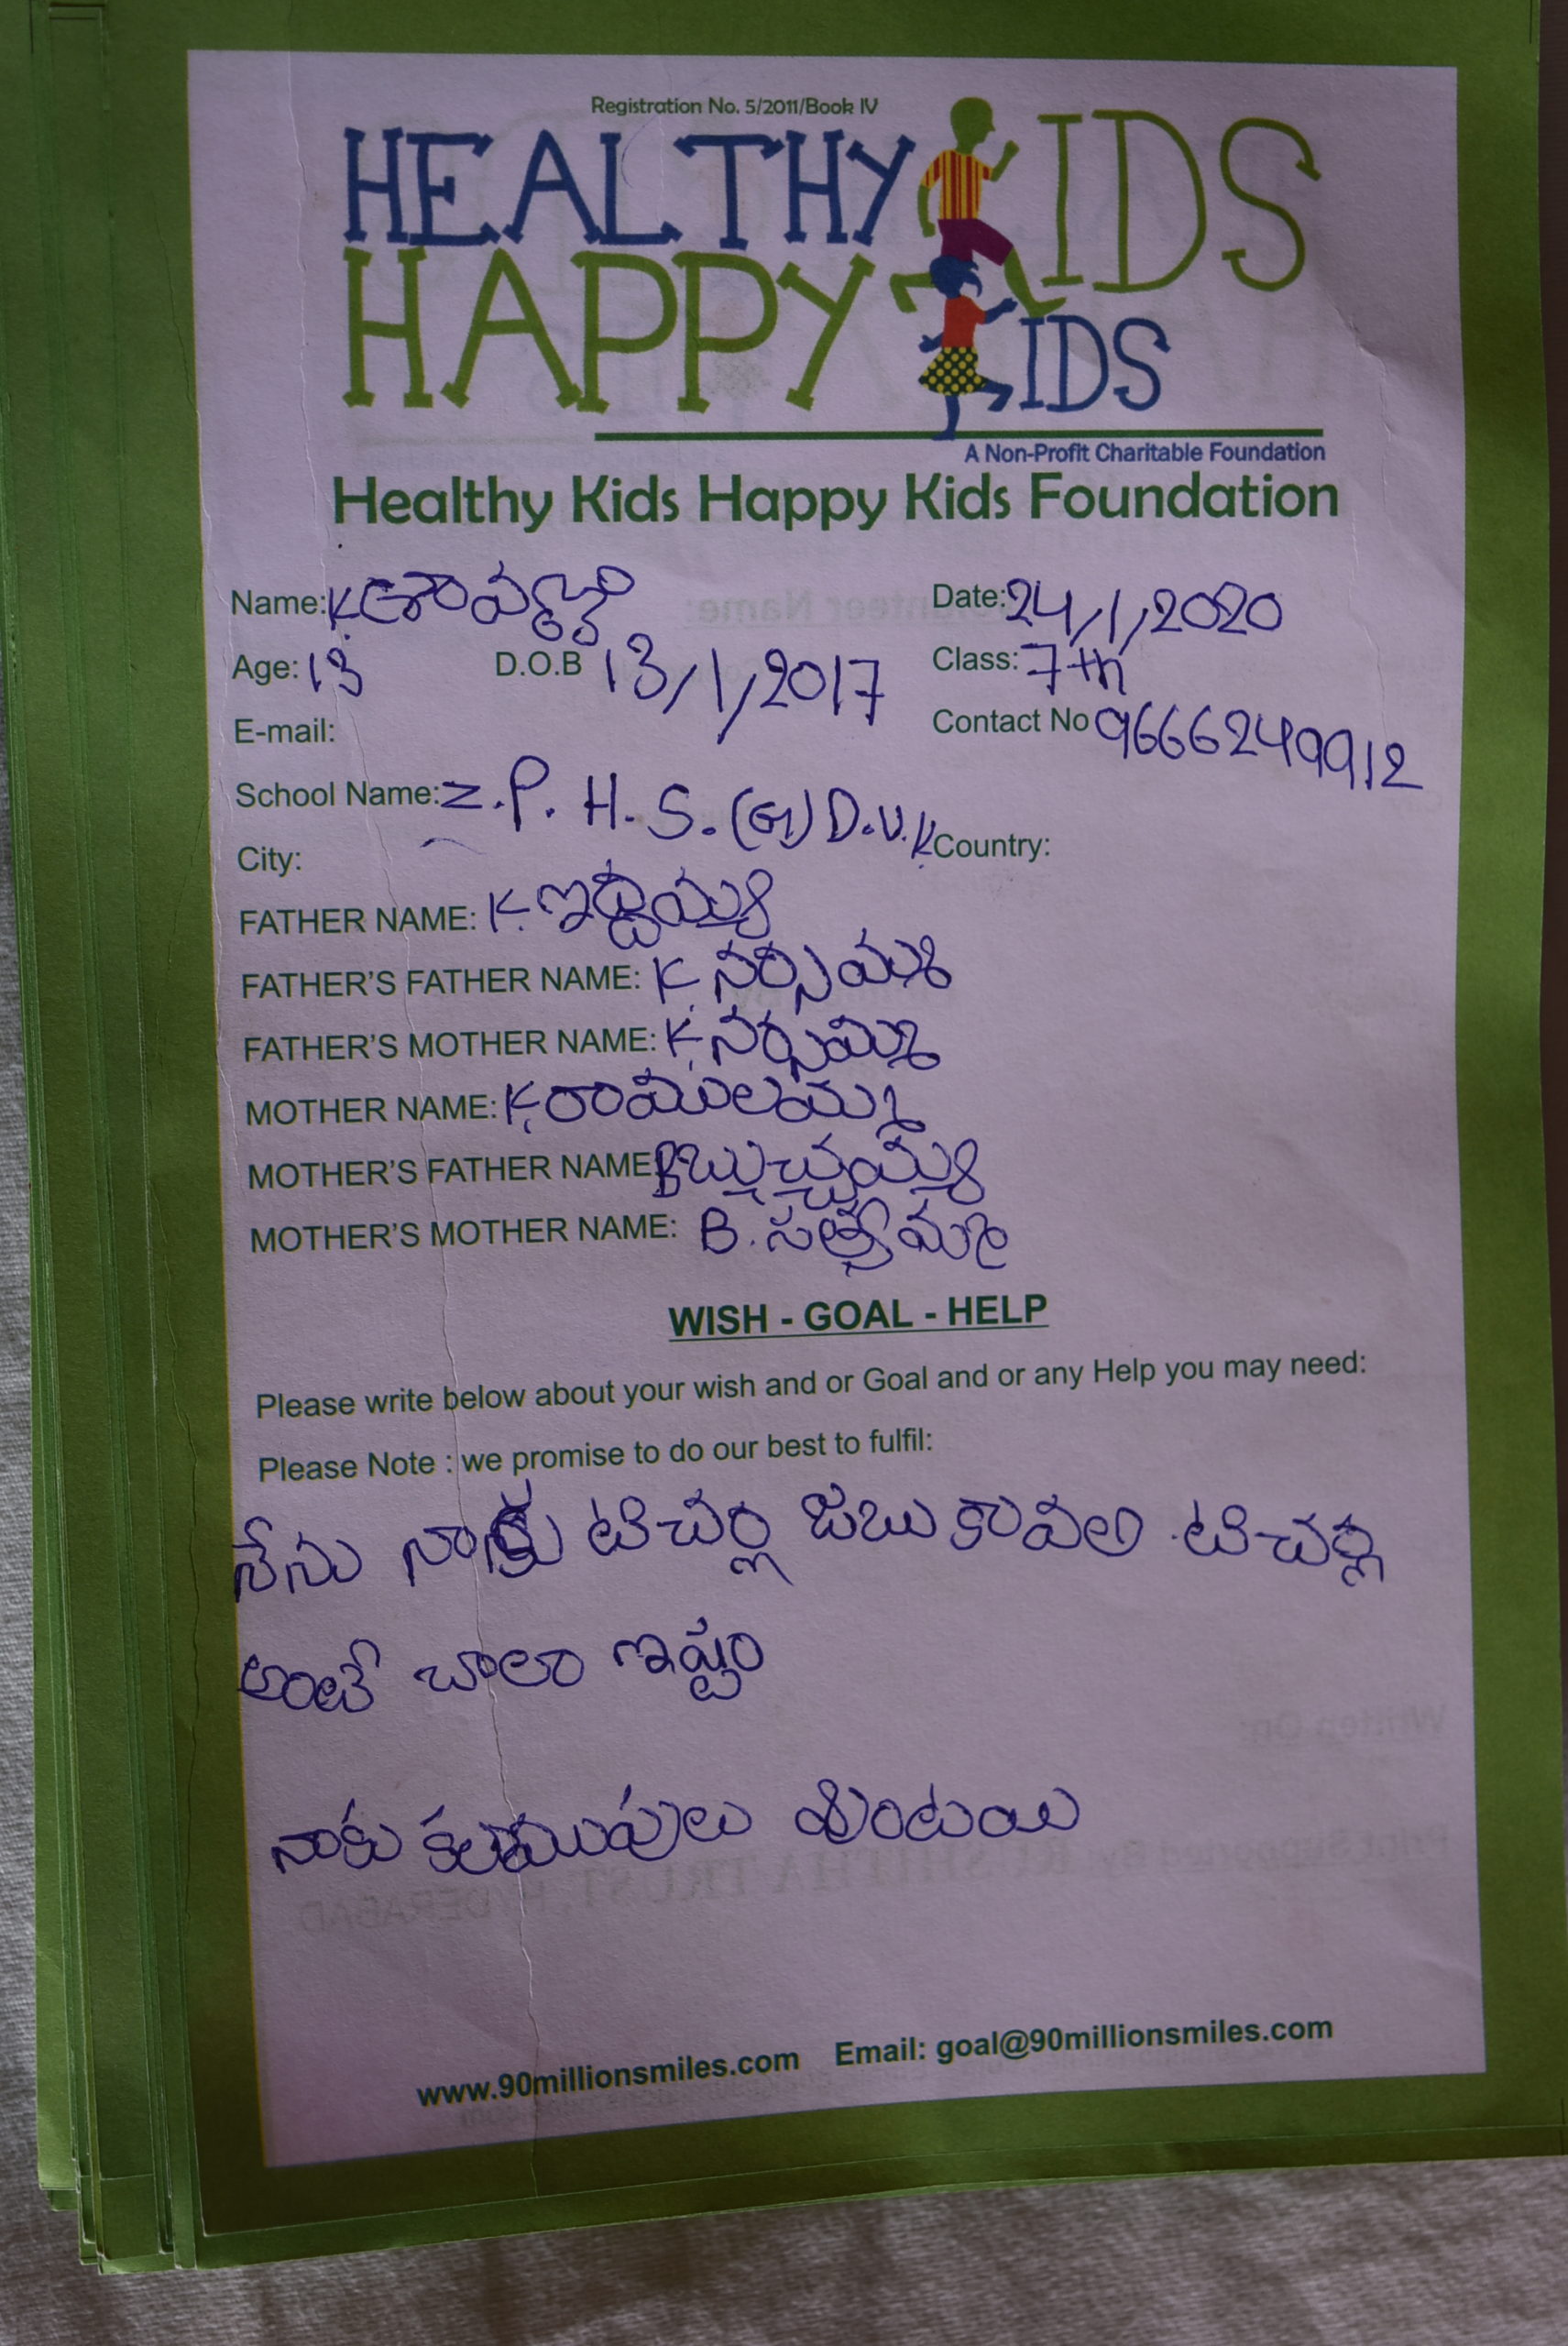 Registration No. 5/2011/Book IV
HEALTHY KIDS
HAPPY KIDS
A Non-Profit Charitable Foundation
Healthy Kids Happy Kids Foundation
Name: K. Date: 24/1/2020
Age: 13 D.O.B 13/1/2017 Class: 7th
E-mail: Contact No 9666249912
School Name: Z.P. H.S. (G) D.V.K
City: Country:
FATHER NAME: K. ఇద్దయ్య
FATHER'S FATHER NAME: K. నర్సియ్య
FATHER'S MOTHER NAME: K. నర్సమ్మ
MOTHER NAME: K. రాములమ్మ
MOTHER'S FATHER NAME: B బుచ్చయ్య
MOTHER'S MOTHER NAME: B. సత్యమ్మ
WISH - GOAL - HELP
Please write below about your wish and or Goal and or any Help you may need:
Please Note : we promise to do our best to fulfil:
నేను నాకు టిచర్ల జబు కావలి టిచర్ల
అంటే చాలా ఇష్టం
నాకు
www.90millionsmiles.com Email: goal@90millionsmiles.com